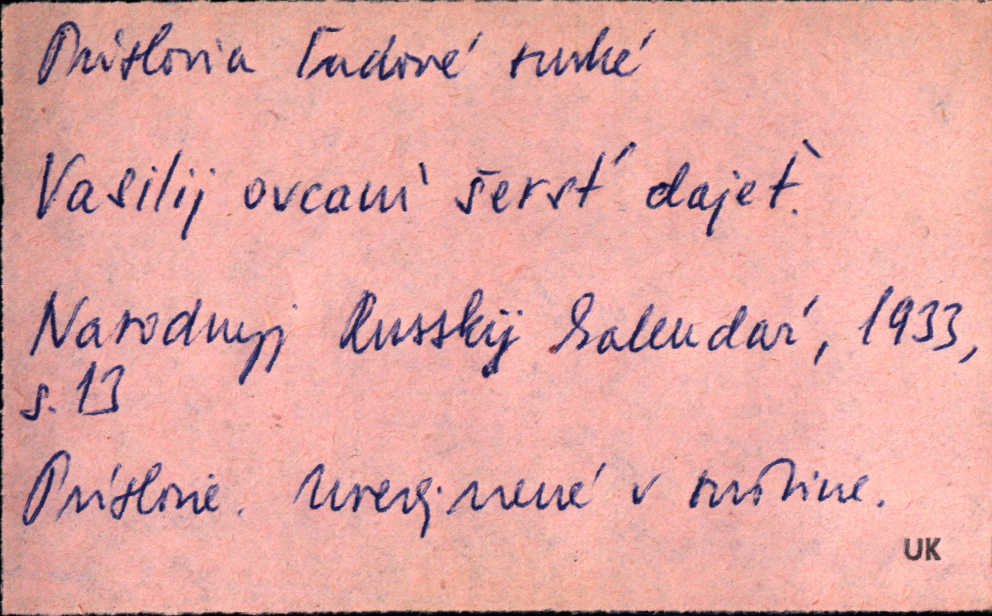 Príslovia ľudové ruské
Vasilij ovcam šersť dajet.
Narodnyj Russkij Kalendar, 1933,
s. 13
Príslovie. Uverejnené v ruštine.
UK